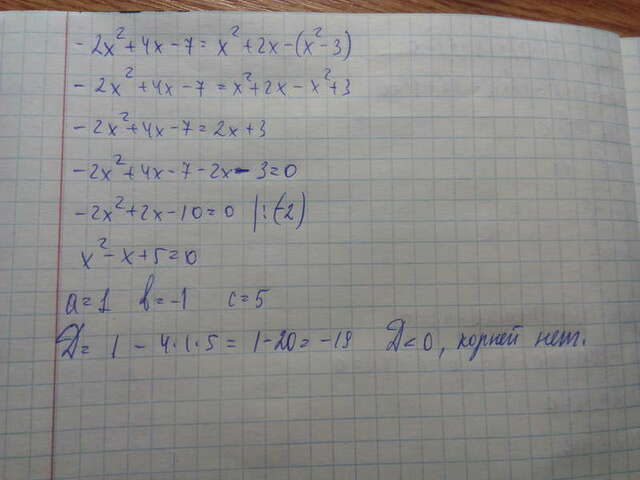 - 2x² + 4x - 7 = x² + 2x - (x² - 3)
- 2x² + 4x - 7 = x² + 2x - x² + 3
- 2x² + 4x - 7 = 2x + 3
- 2x² + 4x - 7 - 2x - 3 = 0
- 2x² + 2x - 10 = 0 | : (-2)
x² - x + 5 = 0
a = 1 b = -1 c = 5
D = 1 - 4 · 1 · 5 = 1 - 20 = -19 D < 0, корней нет.